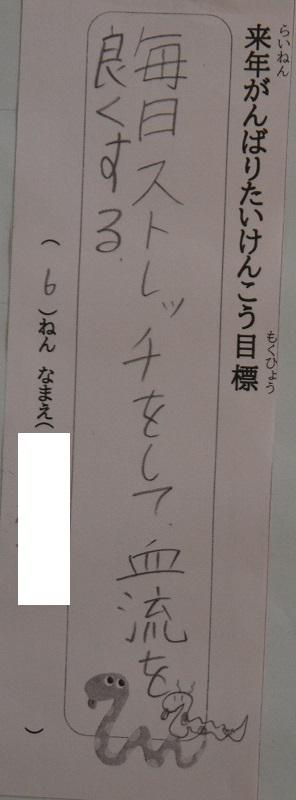 来年がんばりたいけんこう目標
らいねん
もくひょう
毎日ストレッチをして、血流を
良くする。
(6)ねん なまえ( )